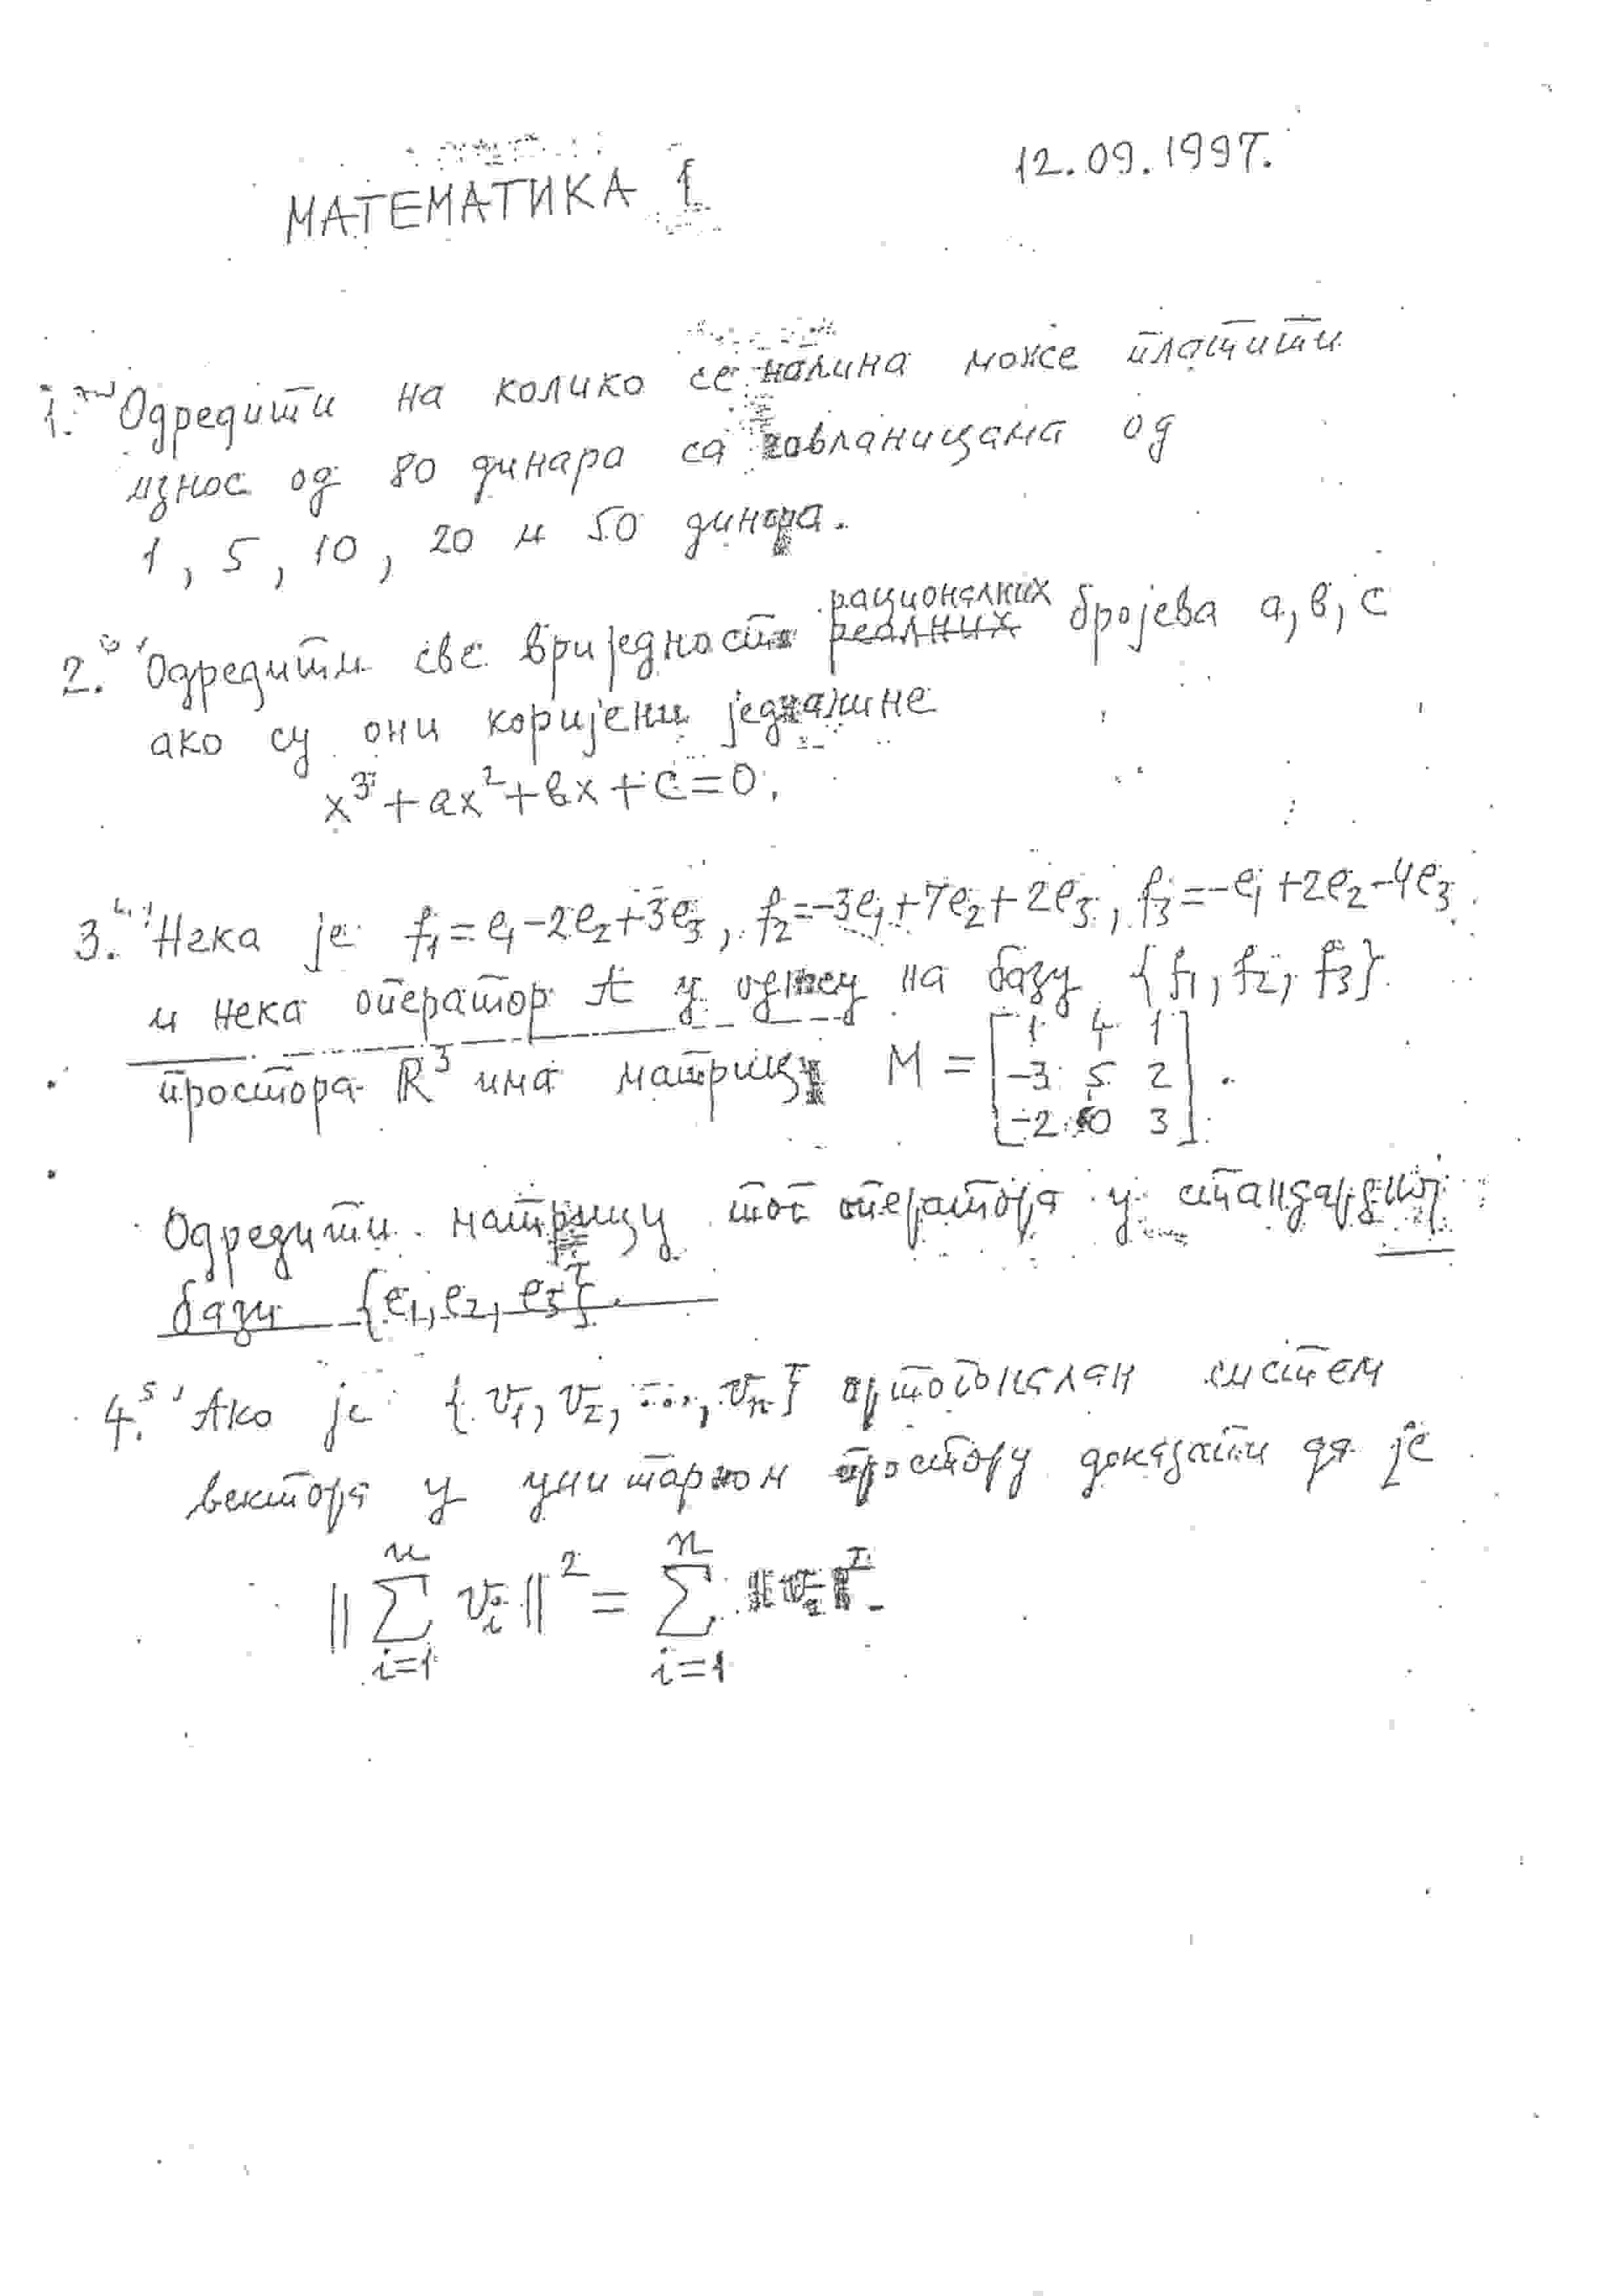 МАТЕМАТИКА 1
12.09.1997.
1. Одредити на колико се начина може платити
износ од 80 динара са новчаницама од
1, 5, 10, 20 и 50 динара.
2. Одредити све вриједности рационалних ~~реалних~~ бројева a, b, c
ако су они коријени једначине
x³ + ax² + bx + c = 0.
3. Нека је f₁ = e₁ - 2e₂ + 3e₃, f₂ = -3e₁ + 7e₂ + 2e₃, f₃ = -e₁ + 2e₂ - 4e₃
и нека оператор A у односу на базу {f₁, f₂, f₃}
простора R³ има матрицу M = [1 4 1; -3 5 2; -2 0 3].
Одредити матрицу тог оператора у стандардној
бази {e₁, e₂, e₃}.
4. Ако је {v₁, v₂, ..., vₙ} ортогоналан систем
вектора у унитарном простору доказати да је
‖∑ᵢ₌₁ⁿ vᵢ‖² = ∑ᵢ₌₁ⁿ ‖vᵢ‖².